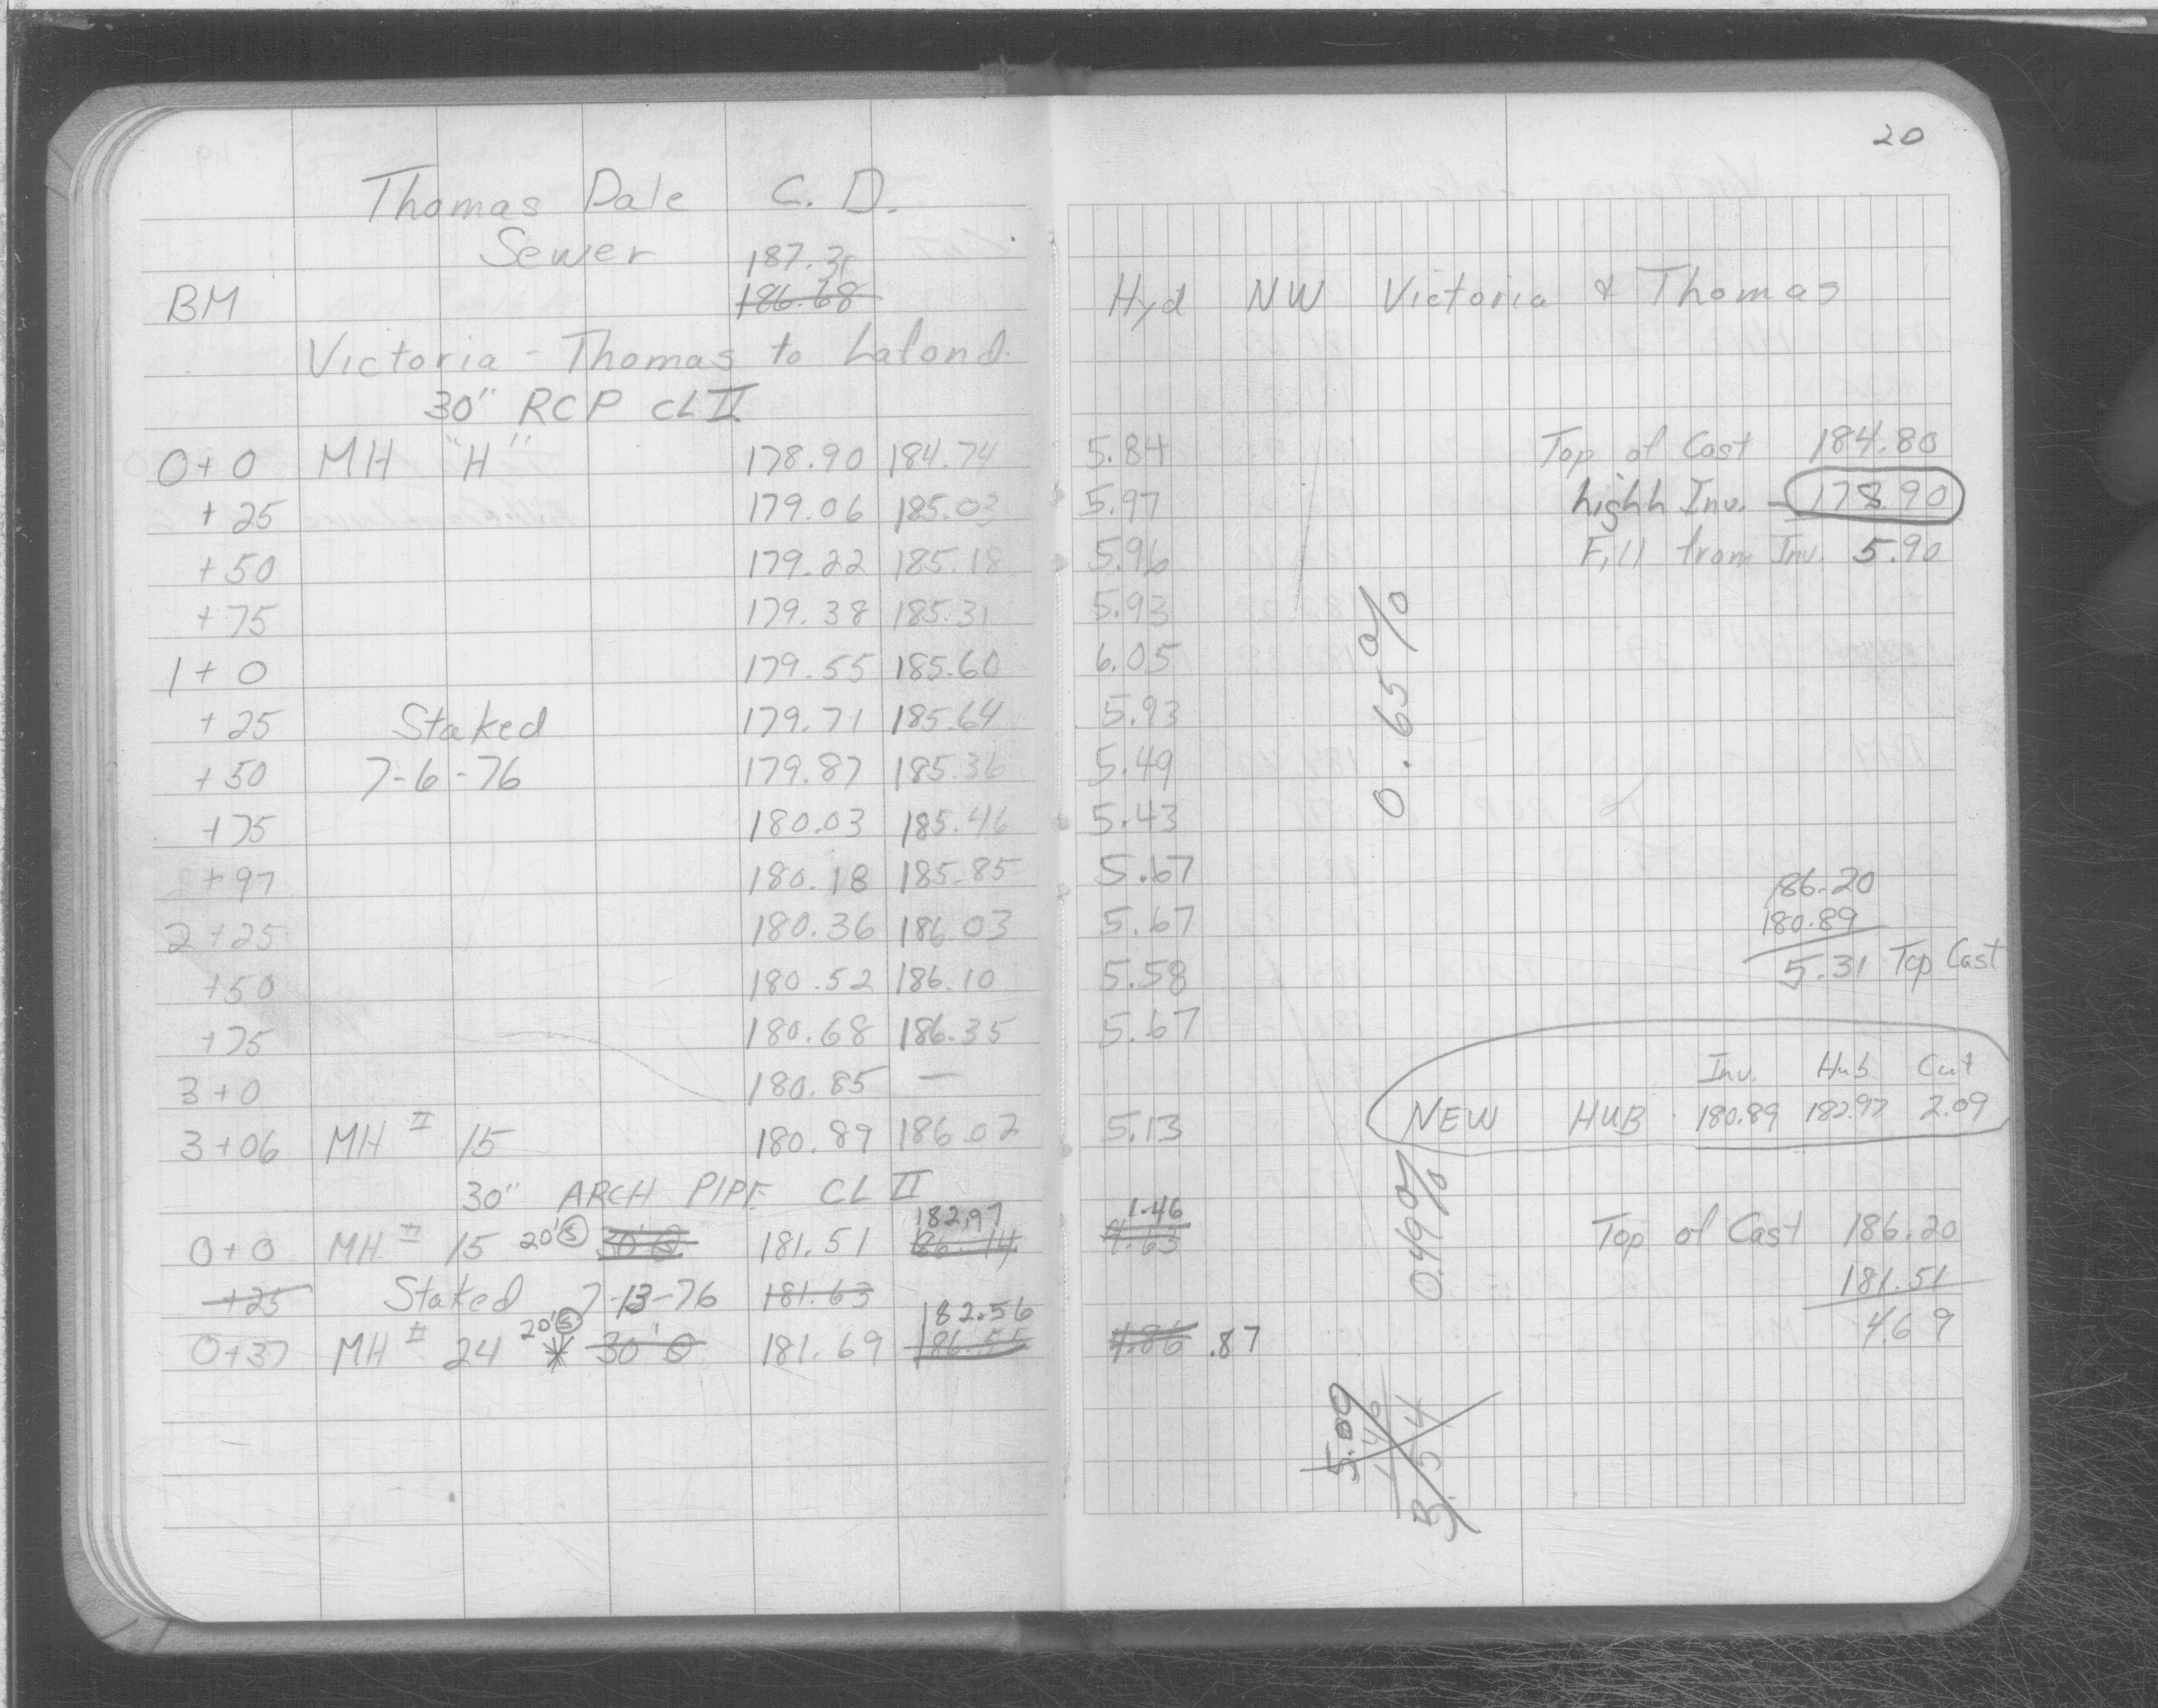 20
Thomas Dale C. D.
Sewer 187.31
BM 186.68 Hyd NW Victoria & Thomas
Victoria - Thomas to Lafond.
30" RCP CL II
0+0 MH "H" 178.90 184.74 5.84 Top of Cast 184.80
+25 179.06 185.03 5.97 highh Inv. - 178.90
+50 179.22 185.18 5.96 Fill from Inv. 5.90
+75 179.38 185.31 5.93
1+0 179.55 185.60 6.05
0.65%
+25 Staked 179.71 185.64 5.93
+50 7-6-76 179.87 185.36 5.49
+75 180.03 185.46 5.43
+97 180.18 185.85 5.67 186.20
2+25 180.36 186.03 5.67 180.89
+50 180.52 186.10 5.58 5.31 Top Cast
+75 180.68 186.35 5.67
3+0 180.85 — Inv. Hub Cut
3+06 MH # 15 180.89 186.02 5.13 NEW HUB 180.89 182.97 2.09
30" ARCH PIPE CL II
182.97 1.46
0+0 MH # 15 20'Ⓢ 30' 181.51 86.14 4.63 Top of Cast 186.20
0.49%
+25 Staked 7-13-76 181.63 181.51
20'Ⓢ 182.56 4.69
0+37 MH # 24 * 30' 181.69 186.55 4.86 .87
5.00
1.46
3.54